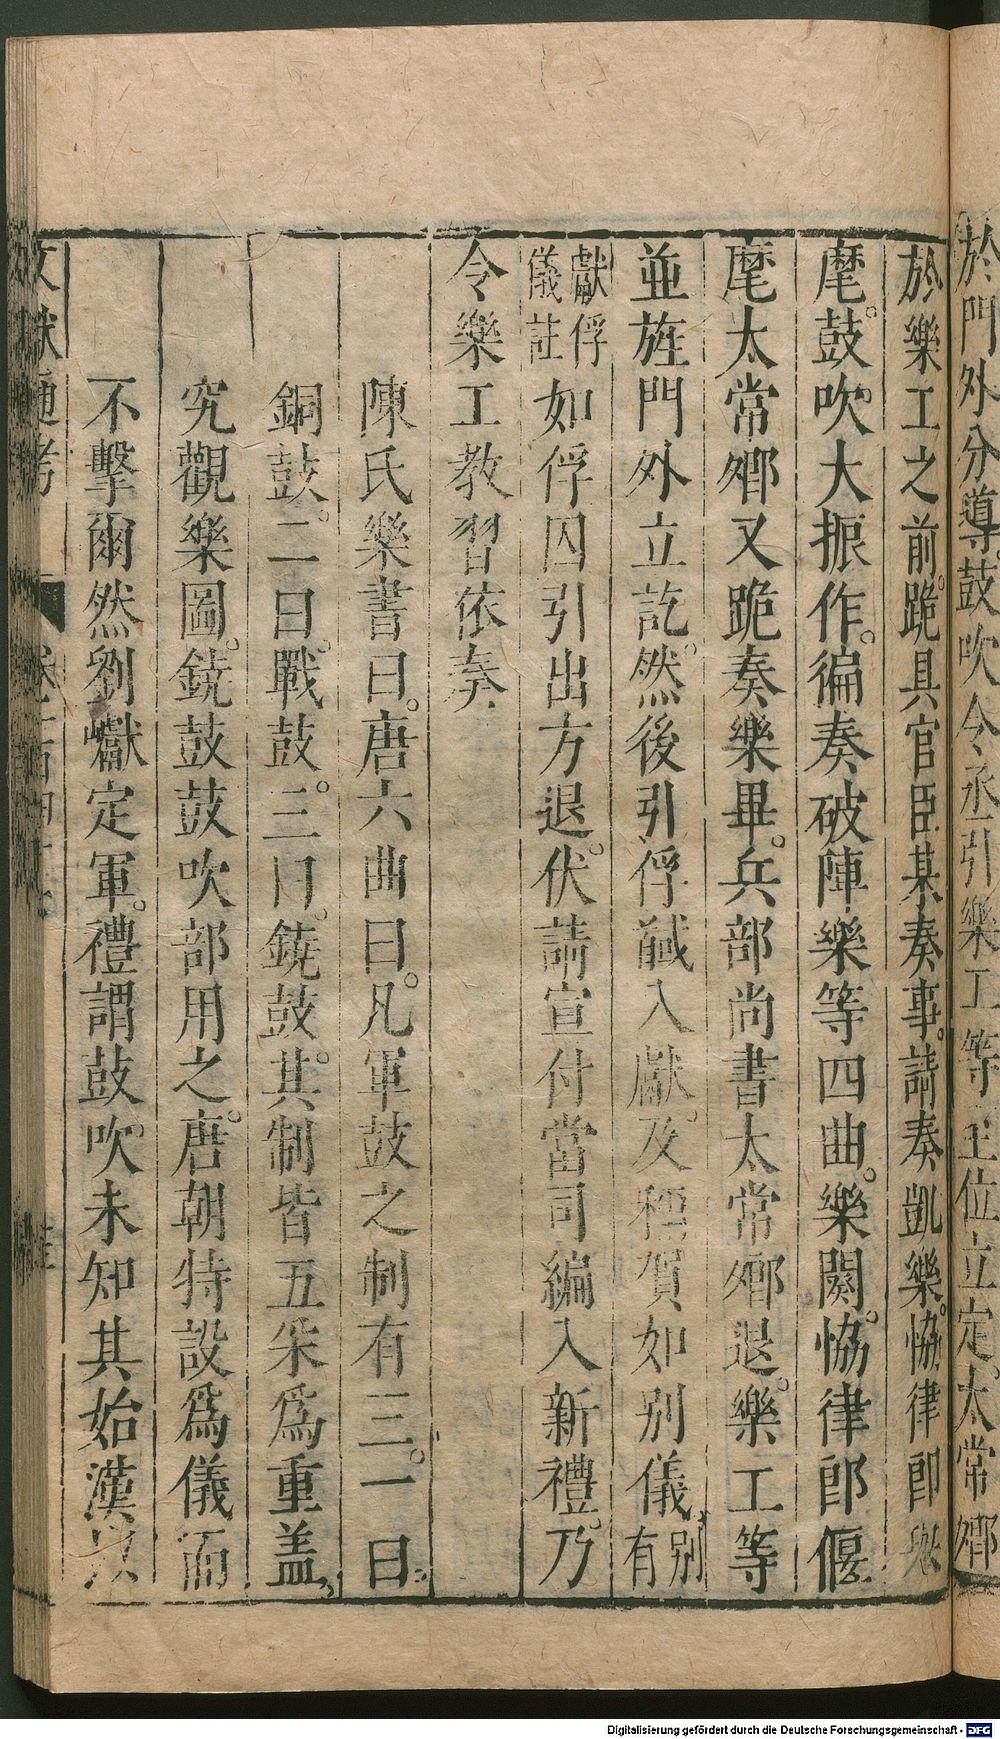 於門外分導鼓吹令丞引樂工等至位立定太常卿
於樂工之前跪具官臣某奏事請奏凱樂協律郎舉
麾鼓吹大振作徧奏破陣樂等四曲樂闋協律郎偃
麾太常卿又跪奏樂畢兵部尚書太常卿退樂工等
並旌門外立訖然後引俘馘入獻及稱賀如別儀別有
獻俘儀註如俘囚引出方退伏請宣付當司編入新禮乃
令樂工教習依奏
陳氏樂書曰唐六曲曰凡軍鼓之制有三一曰
銅鼓二曰戰鼓三曰鐃鼓其制皆五采為重蓋
究觀樂圖鐃鼓鼓吹部用之唐朝特設為儀而
不擊爾然劉巘定軍禮謂鼓吹未知其始漢以
文獻通考 卷一百四十
Digitalisierung gefördert durch die Deutsche Forschungsgemeinschaft - DFG